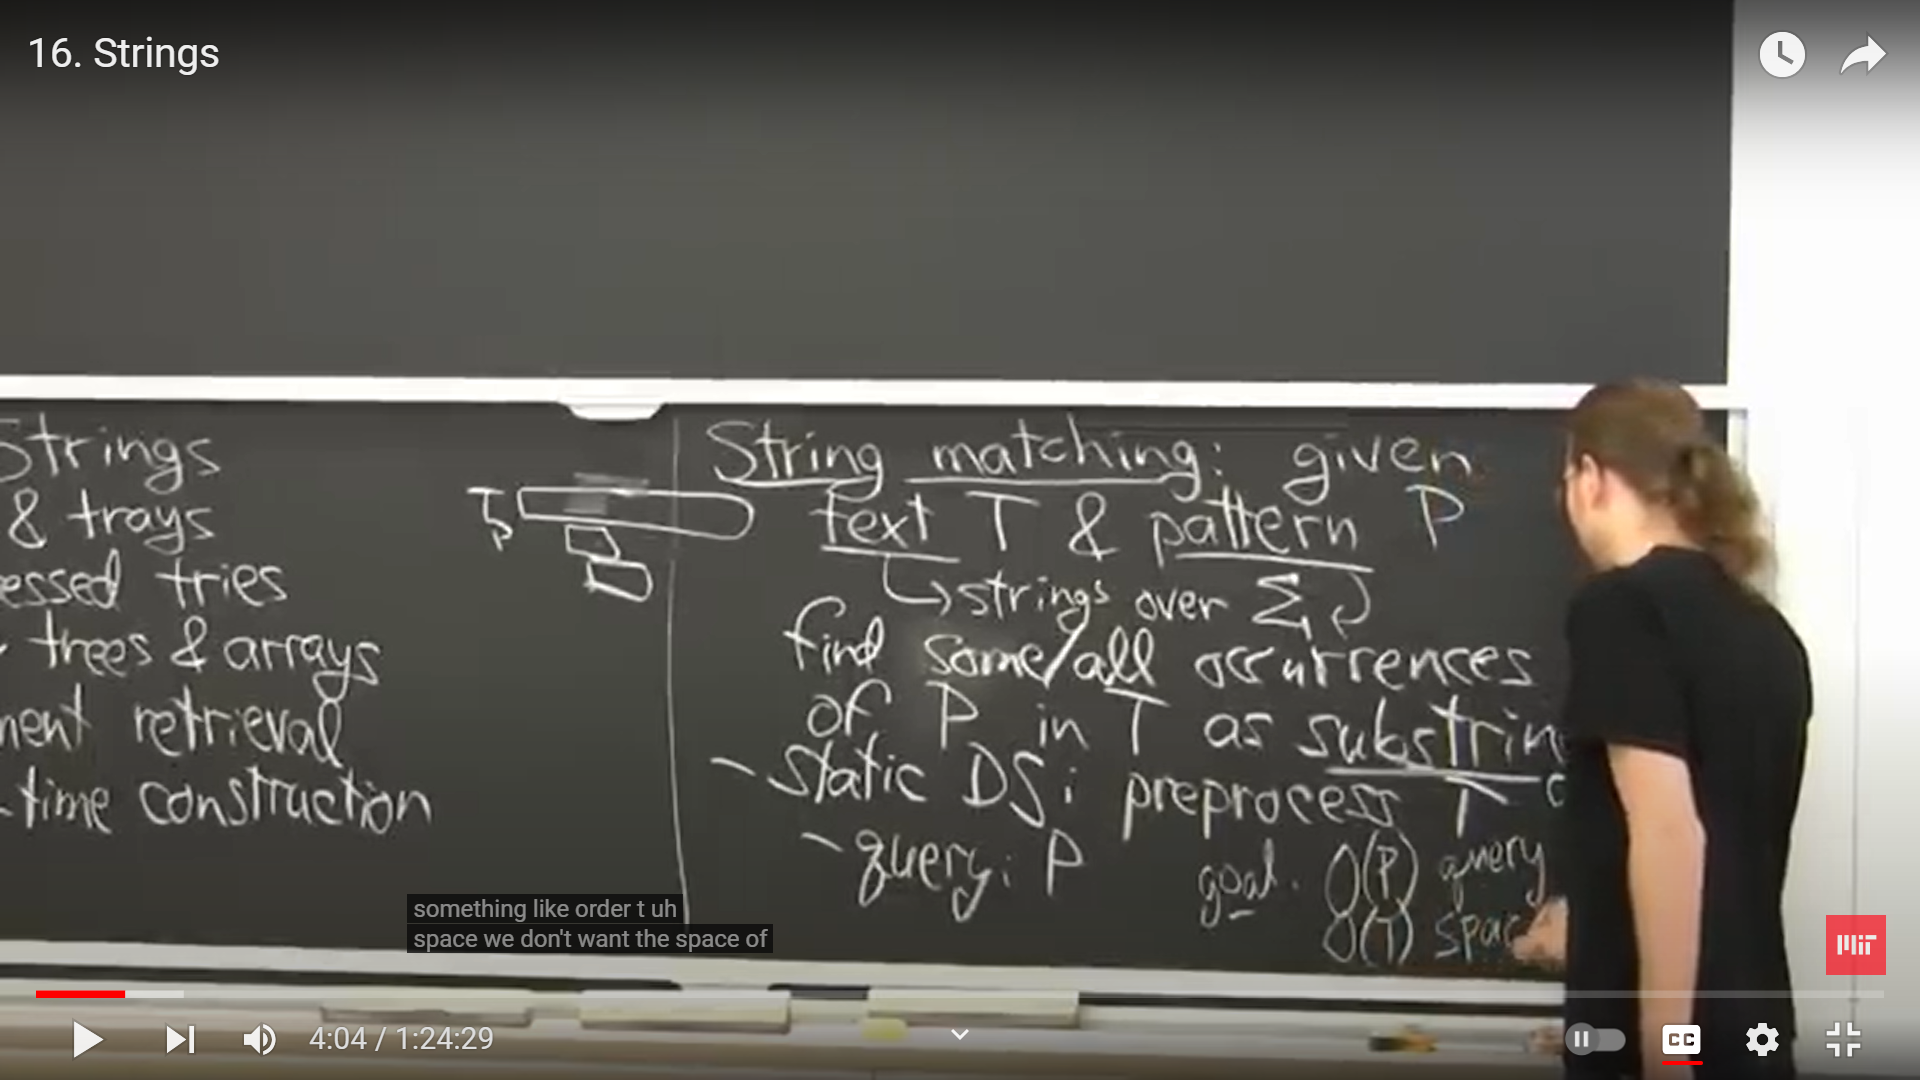 16. Strings
Strings
& trays
essed tries
trees & arrays
ment retrieval
-time construction
T
P
String matching: given
text T & pattern P
strings over Σ
find some/all occurrences
of P in T as substrin
- static DS: preprocess T
- query: P
goal: O(P) query
O(T) spac
something like order t uh
space we don't want the space of
MIT
4:04 / 1:24:29
CC